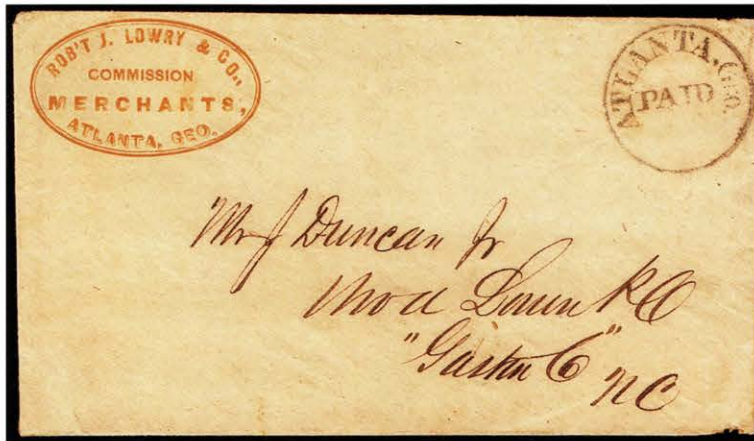 ROB'T J. LOWRY & CO.,
COMMISSION
MERCHANTS,
ATLANTA, GEO.
ATLANTA, GEO.
PAID
Mr J Duncan Jr
"Gaston Co"
NC